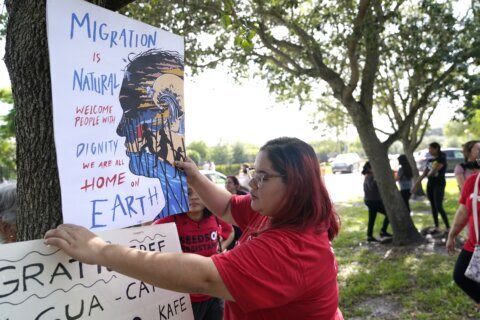 MIGRATION
IS
NATURAL
WELCOME
PEOPLE WITH
DIGNITY
WE ARE ALL
HOME ON
EARTH
SEEDS
RESISTAN
KAFE